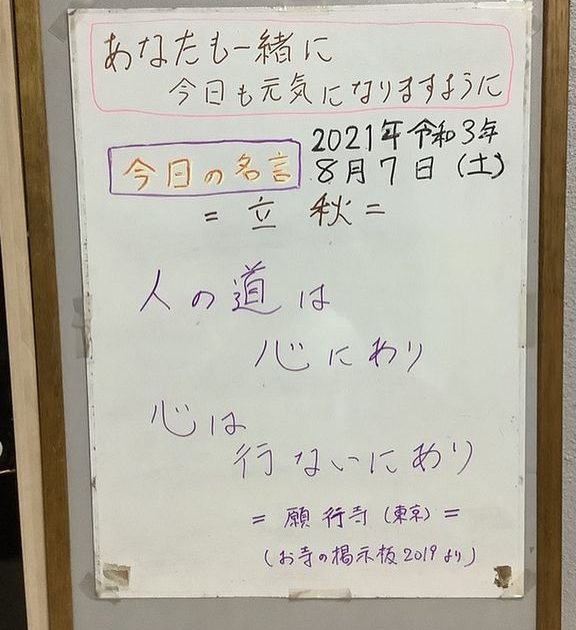 あなたも一緒に
今日も元気になりますように
2021年令和3年
今日の名言 8月7日(土)
=立秋=
人の道は
心にあり
心は
行ないにあり
=願行寺(東京)=
(お寺の掲示板2019より)